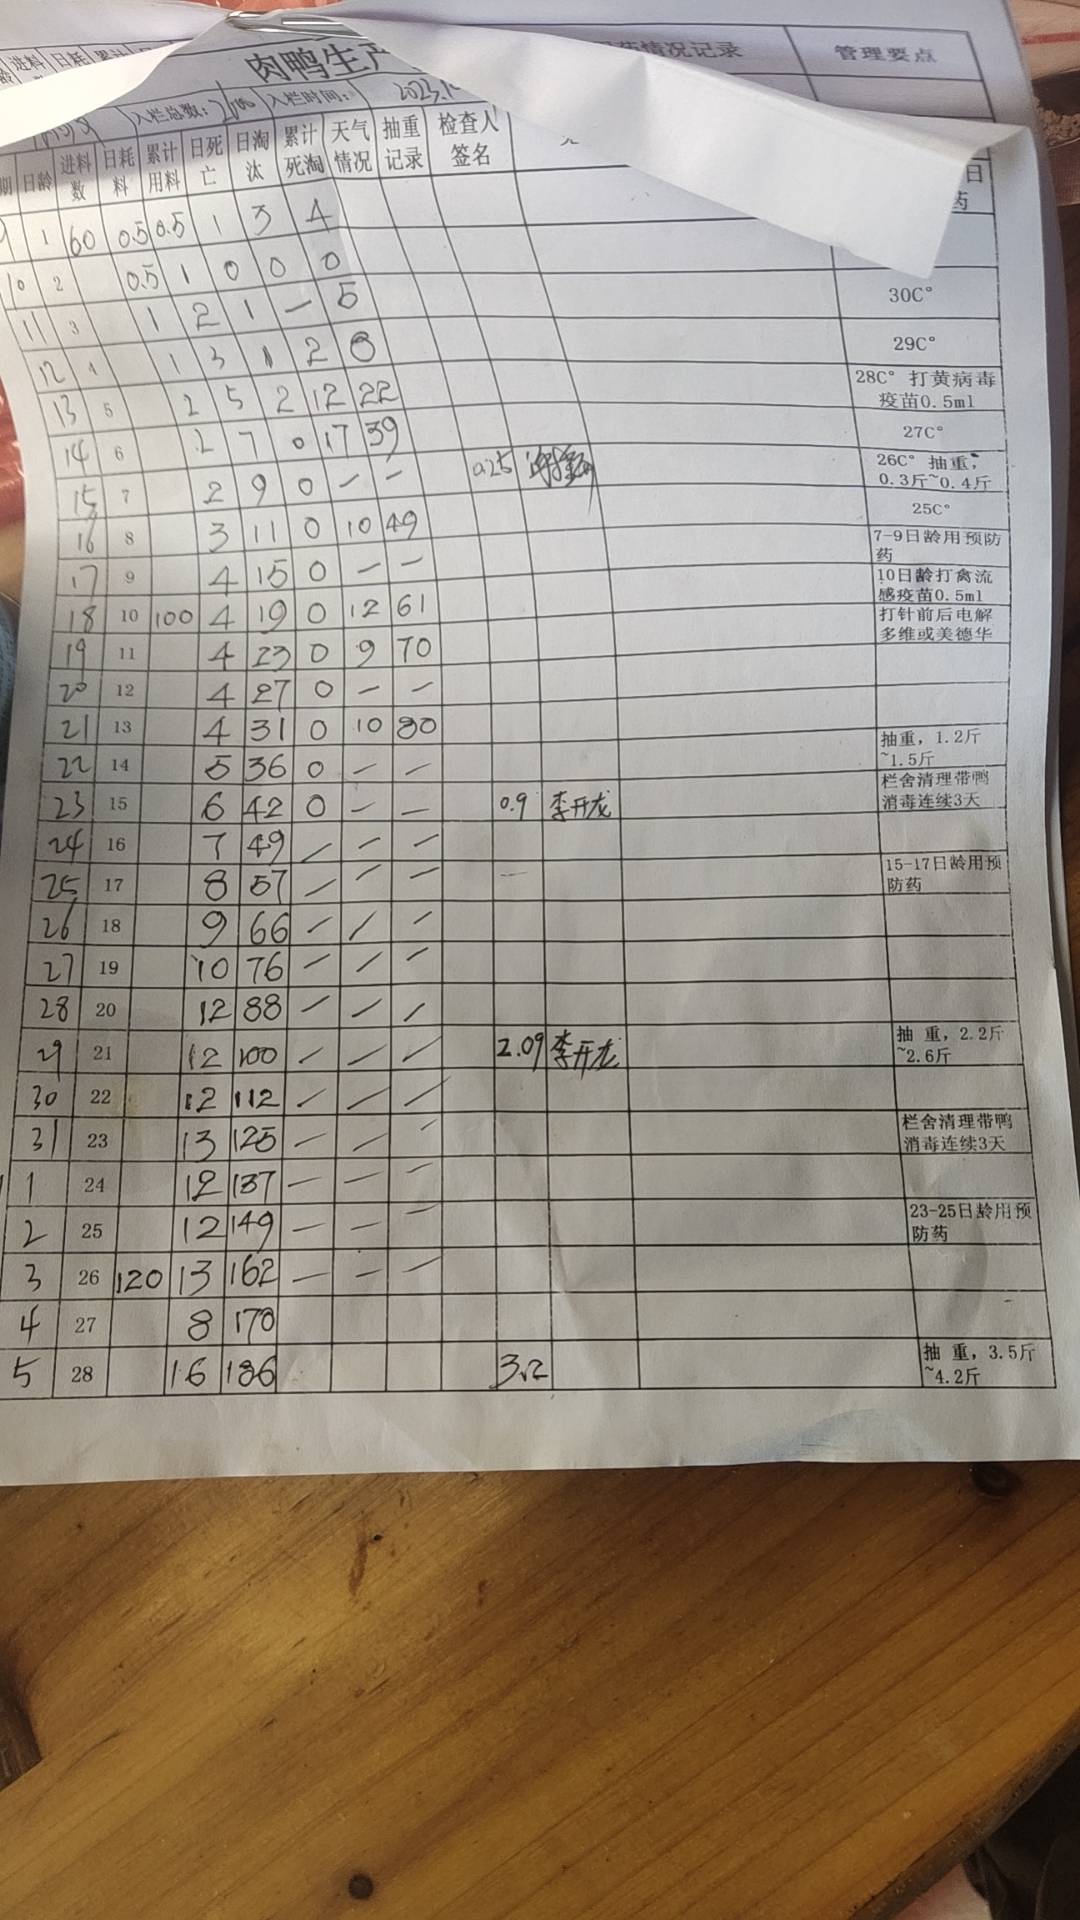 进料 日耗 累计
情况记录 管理要点
肉鸭生产
入栏总数: 2600 入栏时间: 2023.1
期 日龄 进料数 日耗料 累计用料 日死亡 日淘汰 累计死淘 天气情况 抽重记录 检查人签名
日
药
9 1 60 0.5 0.5 1 3 4
10 2 0.5 1 0 0 0 30C°
11 3 1 2 1 — 5 29C°
12 4 1 3 1 2 8 28C° 打黄病毒疫苗0.5ml
13 5 2 5 2 12 22 27C°
14 6 2 7 0 17 39 26C° 抽重,0.3斤~0.4斤
15 7 2 9 0 — — 0.25 25C°
16 8 3 11 0 10 49 7-9日龄用预防药
17 9 4 15 0 — — 10日龄打禽流感疫苗0.5ml
18 10 100 4 19 0 12 61 打针前后电解多维或美德华
19 11 4 23 0 9 70
20 12 4 27 0 — —
21 13 4 31 0 10 80 抽重, 1.2斤~1.5斤
22 14 5 36 0 — — 栏舍清理带鸭消毒连续3天
23 15 6 42 0 — — 0.9 李开龙
24 16 7 49 — — — 15-17日龄用预防药
25 17 8 57 — — — —
26 18 9 66 — — —
27 19 10 76 — — —
28 20 12 88 — — —
29 21 12 100 — — — 2.09 李开龙 抽 重, 2.2斤~2.6斤
30 22 12 112 — — —
31 23 13 125 — — — 栏舍清理带鸭消毒连续3天
1 24 12 137 — — —
2 25 12 149 — — — 23-25日龄用预防药
3 26 120 13 162 — — —
4 27 8 170
5 28 16 186 3.2 抽 重, 3.5斤~4.2斤